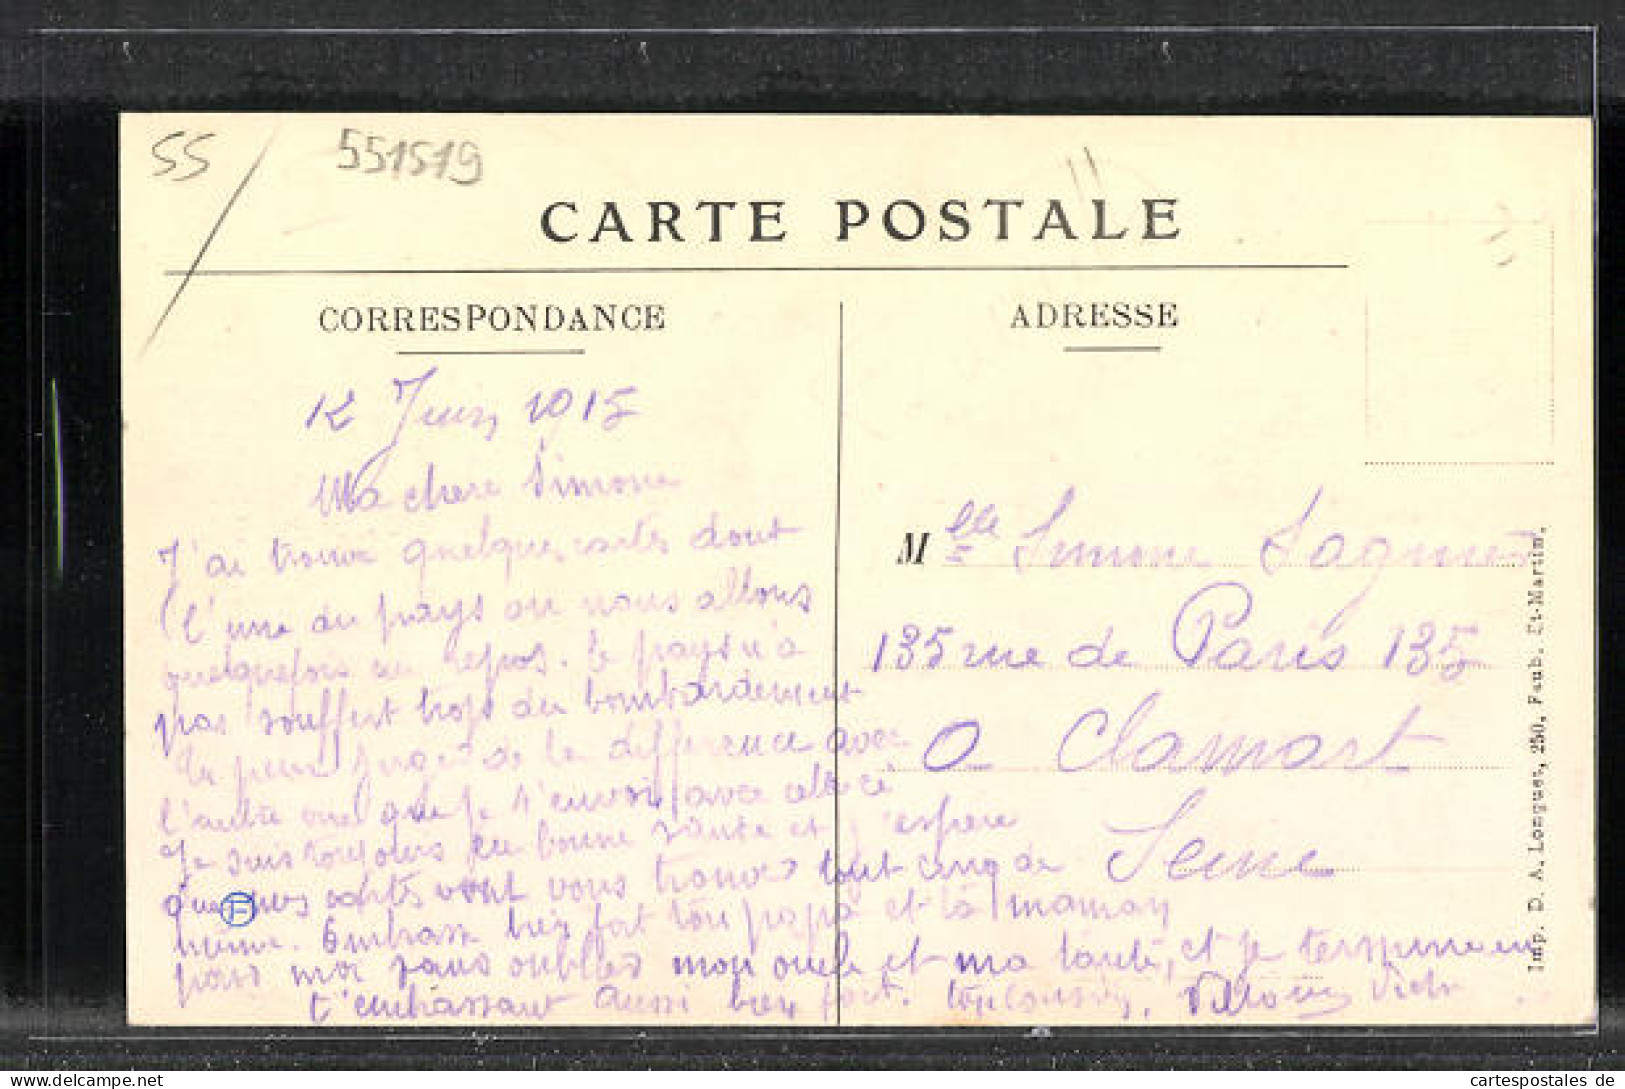 55
551519
CARTE POSTALE
CORRESPONDANCE
ADRESSE
12 Juin 1915
Ma chere Simone
J'ai trouvé quelques cartes dont
l'une du pays ou nous allons
quelquefois au repos. le pays n'a
pas souffert trop du bombardement
tu peux juger de la difference avec
l'autre que je t'envoi avec celle ci
Je suis toujours en bonne santé et j'espère
que mes cartes vont vous trouver tout cinq de
même. Embrasse bien fort ton papa et ta maman
pour moi sans oublier mon oncle et ma tante, et je termine en
t'embrassant aussi bien fort. ton cousin,
Mlle Simone
135 rue de Paris 135
a Clamart
Seine
Imp. D. A. Longuet, 250, Faub. St-Martin.
cartespostales de